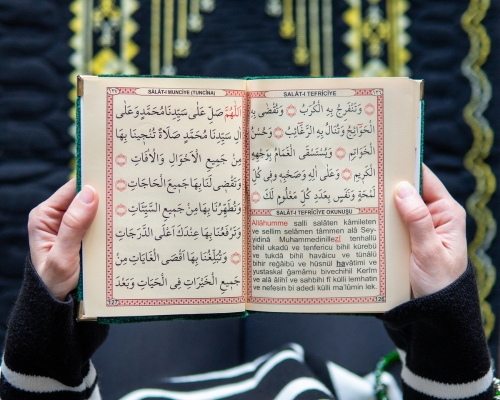 SALÂT-I TEFRİCİYE
وَتَنْفَرِجُ بِهِ الْكُرَبُ وَتُقْضَى بِهِ
الْحَوَائِجُ وَتُنَالُ بِهِ الرَّغَائِبُ وَحُسْنُ
الْخَوَاتِمِ وَيُسْتَسْقَى الْغَمَامُ بِوَجْهِهِ
الْكَرِيمِ وَعَلَى اٰلِهِ وَصَحْبِهِ فِى كُلِّ
لَمْحَةٍ وَنَفَسٍ بِعَدَدِ كُلِّ مَعْلُومٍ لَكَ
SALÂT-I TEFRİCİYE OKUNUŞU
Allâhumme salli salâten kâmileten
ve sellim selâmen tâmmen alâ Sey-
yidinâ Muhammedinillezî tenhallü
bihil ukadü ve tenfericu bihil kürebü
ve tukdâ bihil havâicu ve tünâlü
bihir reğâibü ve hüsnül havâtimi ve
yustaskal ğamâmu bivechihil Kerîm
ve alâ âlihî ve sahbihî fî külli lemhatin
ve nefesin bi adedi külli ma'lûmin lek.
126
SALÂT-I MUNCİYE (TUNCİNA)
اَللّٰهُمَّ صَلِّ عَلٰى سَيِّدِنَا مُحَمَّدٍ وَعَلٰى
اٰلِ سَيِّدِنَا مُحَمَّدٍ صَلَاةً تُنْجِينَا بِهَا
مِنْ جَمِيعِ الْاَحْوَالِ وَالْاٰفَاتِ
وَتَقْضِى لَنَا بِهَا جَمِيعَ الْحَاجَاتِ
وَتُطَهِّرُنَا بِهَا مِنْ جَمِيعِ السَّيِّئَاتِ
وَتَرْفَعُنَا بِهَا عِنْدَكَ اَعْلَى الدَّرَجَاتِ
وَتُبَلِّغُنَا بِهَا اَقْصَى الْغَايَاتِ مِنْ
جَمِيعِ الْخَيْرَاتِ فِى الْحَيَاتِ وَبَعْدَ
127